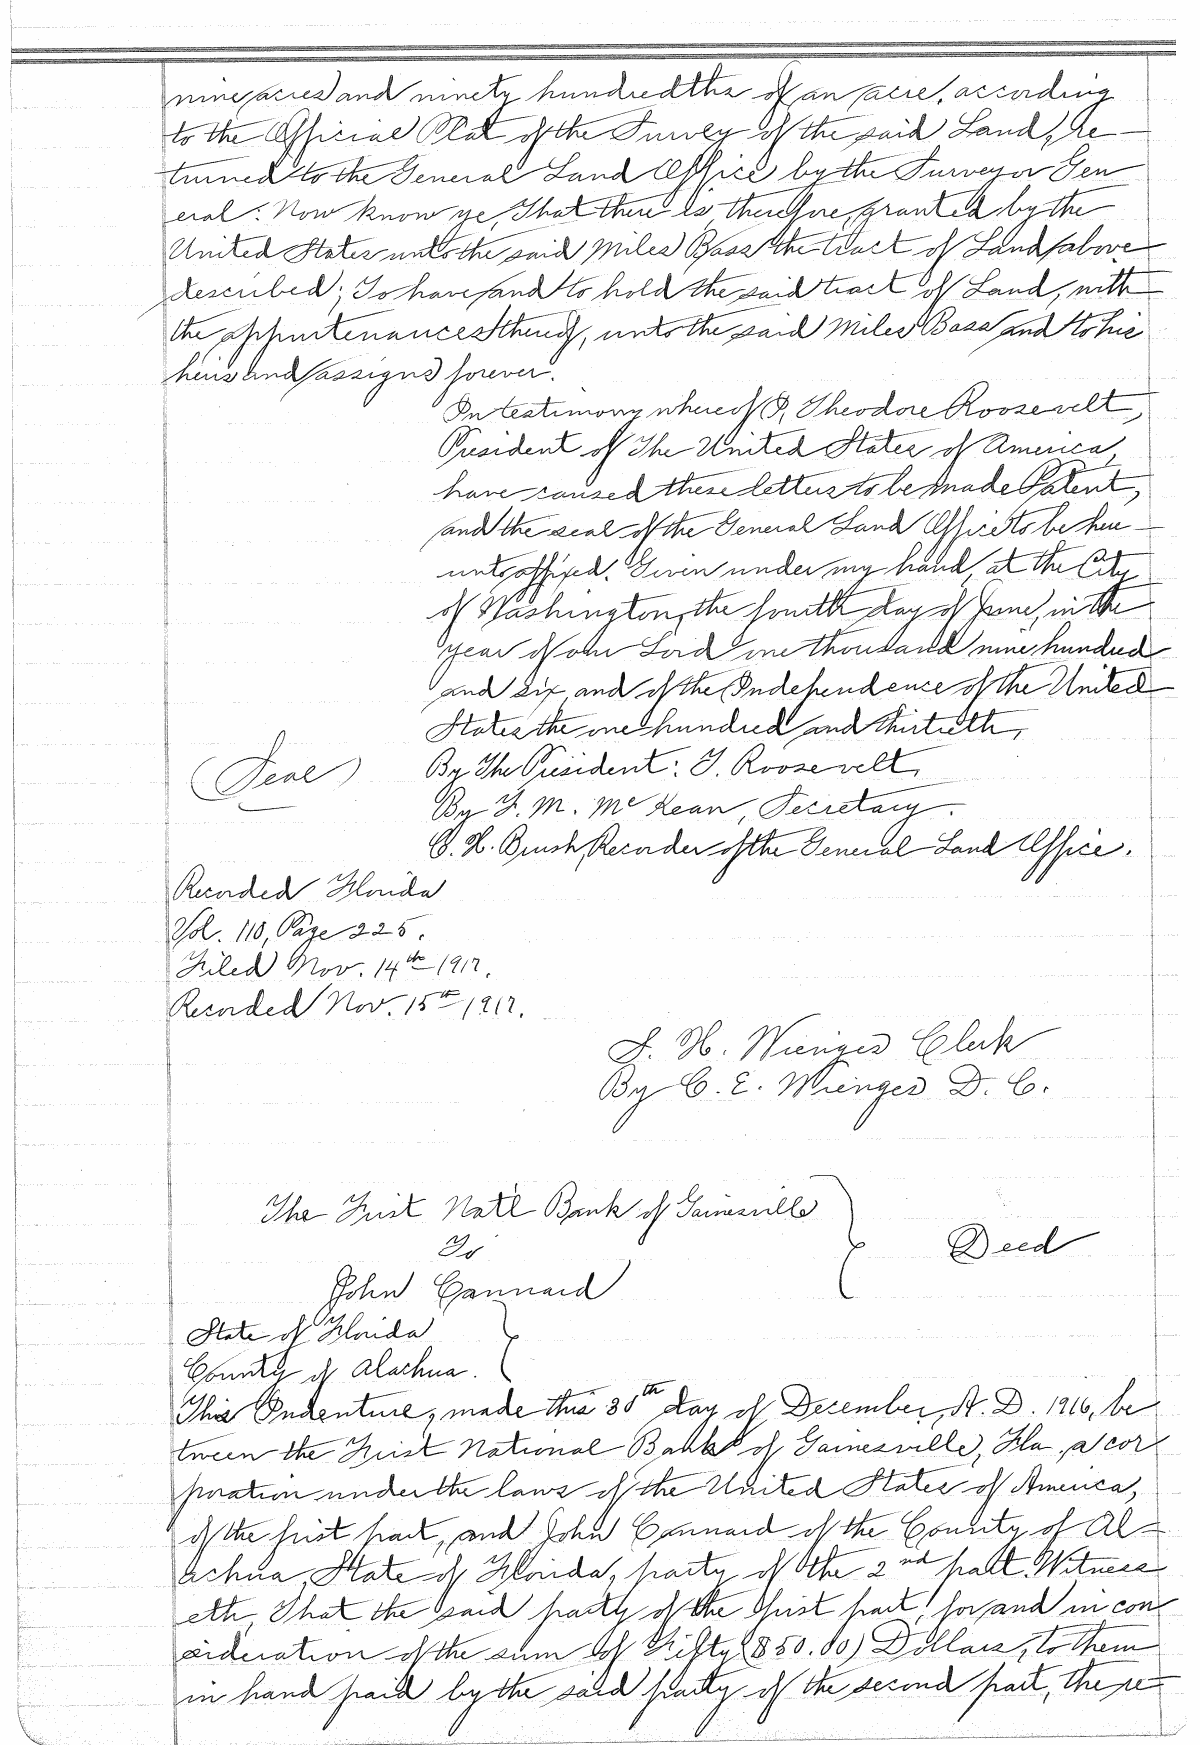 nine acres and ninety hundredths of an acre, according
to the Official Plat of the Survey of the said Land, re-
turned to the General Land Office by the Surveyor Gen
eral: Now know ye, That there is, therefore, granted by the
United States unto the said Miles Bass the tract of Land above
described; To have and to hold the said tract of Land, with
the appurtenances thereof, unto the said Miles Bass and to his
heirs and assigns forever.
In testimony whereof I, Theodore Roosevelt,
President of The United States of America,
have caused these letters to be made Patent,
and the seal of the General Land Office to be here-
unto affixed. Given under my hand, at the City
of Washington, the fourth day of June, in the
year of our Lord one thousand nine hundred
and six, and of the Independence of the United
States the one hundred and thirtieth,
By The President: T. Roosevelt,
(Seal)
By F. M. McKean, Secretary.
C. H. Brush, Recorder of the General Land Office.
Recorded Florida
Vol. 110, Page 225.
Filed Nov. 14th 1917.
Recorded Nov. 15th 1917.
S. H. Wienges Clerk
By C. E. Wienges D. C.
The First Nat'l Bank of Gainesville
To
Deed
John Cannard
State of Florida
County of Alachua.
This Indenture, made this 30th day of December, A. D. 1916, be
tween the First National Bank of Gainesville, Fla., a cor
poration under the laws of the United States of America,
of the first part, and John Cannard of the County of Al-
achua, State of Florida, party of the 2nd part. Witness
eth, That the said party of the first part, for and in con
sideration of the sum of Fifty ($50.00) Dollars, to them
in hand paid by the said party of the second part, the re-